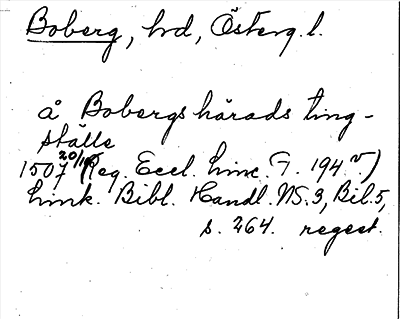 Boberg, hd, Österg. l.
å Bobergs härads ting-
ställe
1507 20/10 (Reg. Eccl. Linc. F. 194 v.)
Link. Bibl. Handl. NS. 3, Bil. 5,
s. 264. regest.